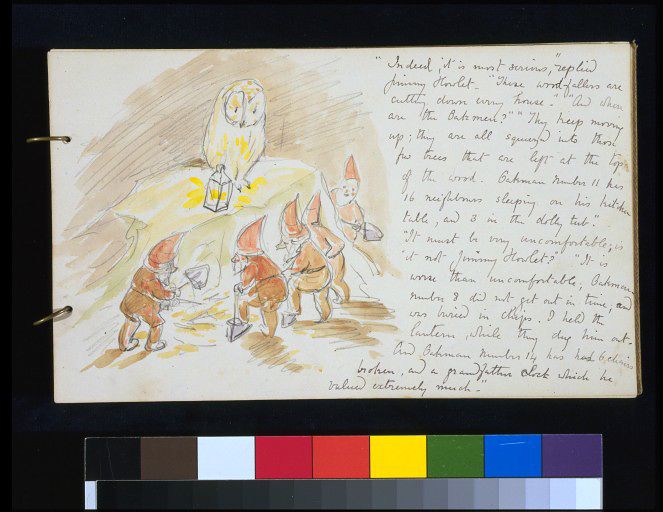 "Indeed, it is most serious," replied
Jimmy Howlet. "These woodfellers are
cutting down every house." "And where
are the Oakmen?" "They keep moving
up; they are all squeezed into those
few trees that are left at the top
of the wood. Oakman Number 11 has
16 neighbours sleeping on his kitchen
table, and 3 in the dolly tub".
"It must be very uncomfortable; is
it not Jimmy Howlet?" "It is
worse than uncomfortable; Oakman
number 8 did not get out in time, and
was buried in chips. I held the
lantern, while they dug him out.
And Oakman Number 14 has had 6 chairs
broken, and a grandfather clock which he
valued extremely much."